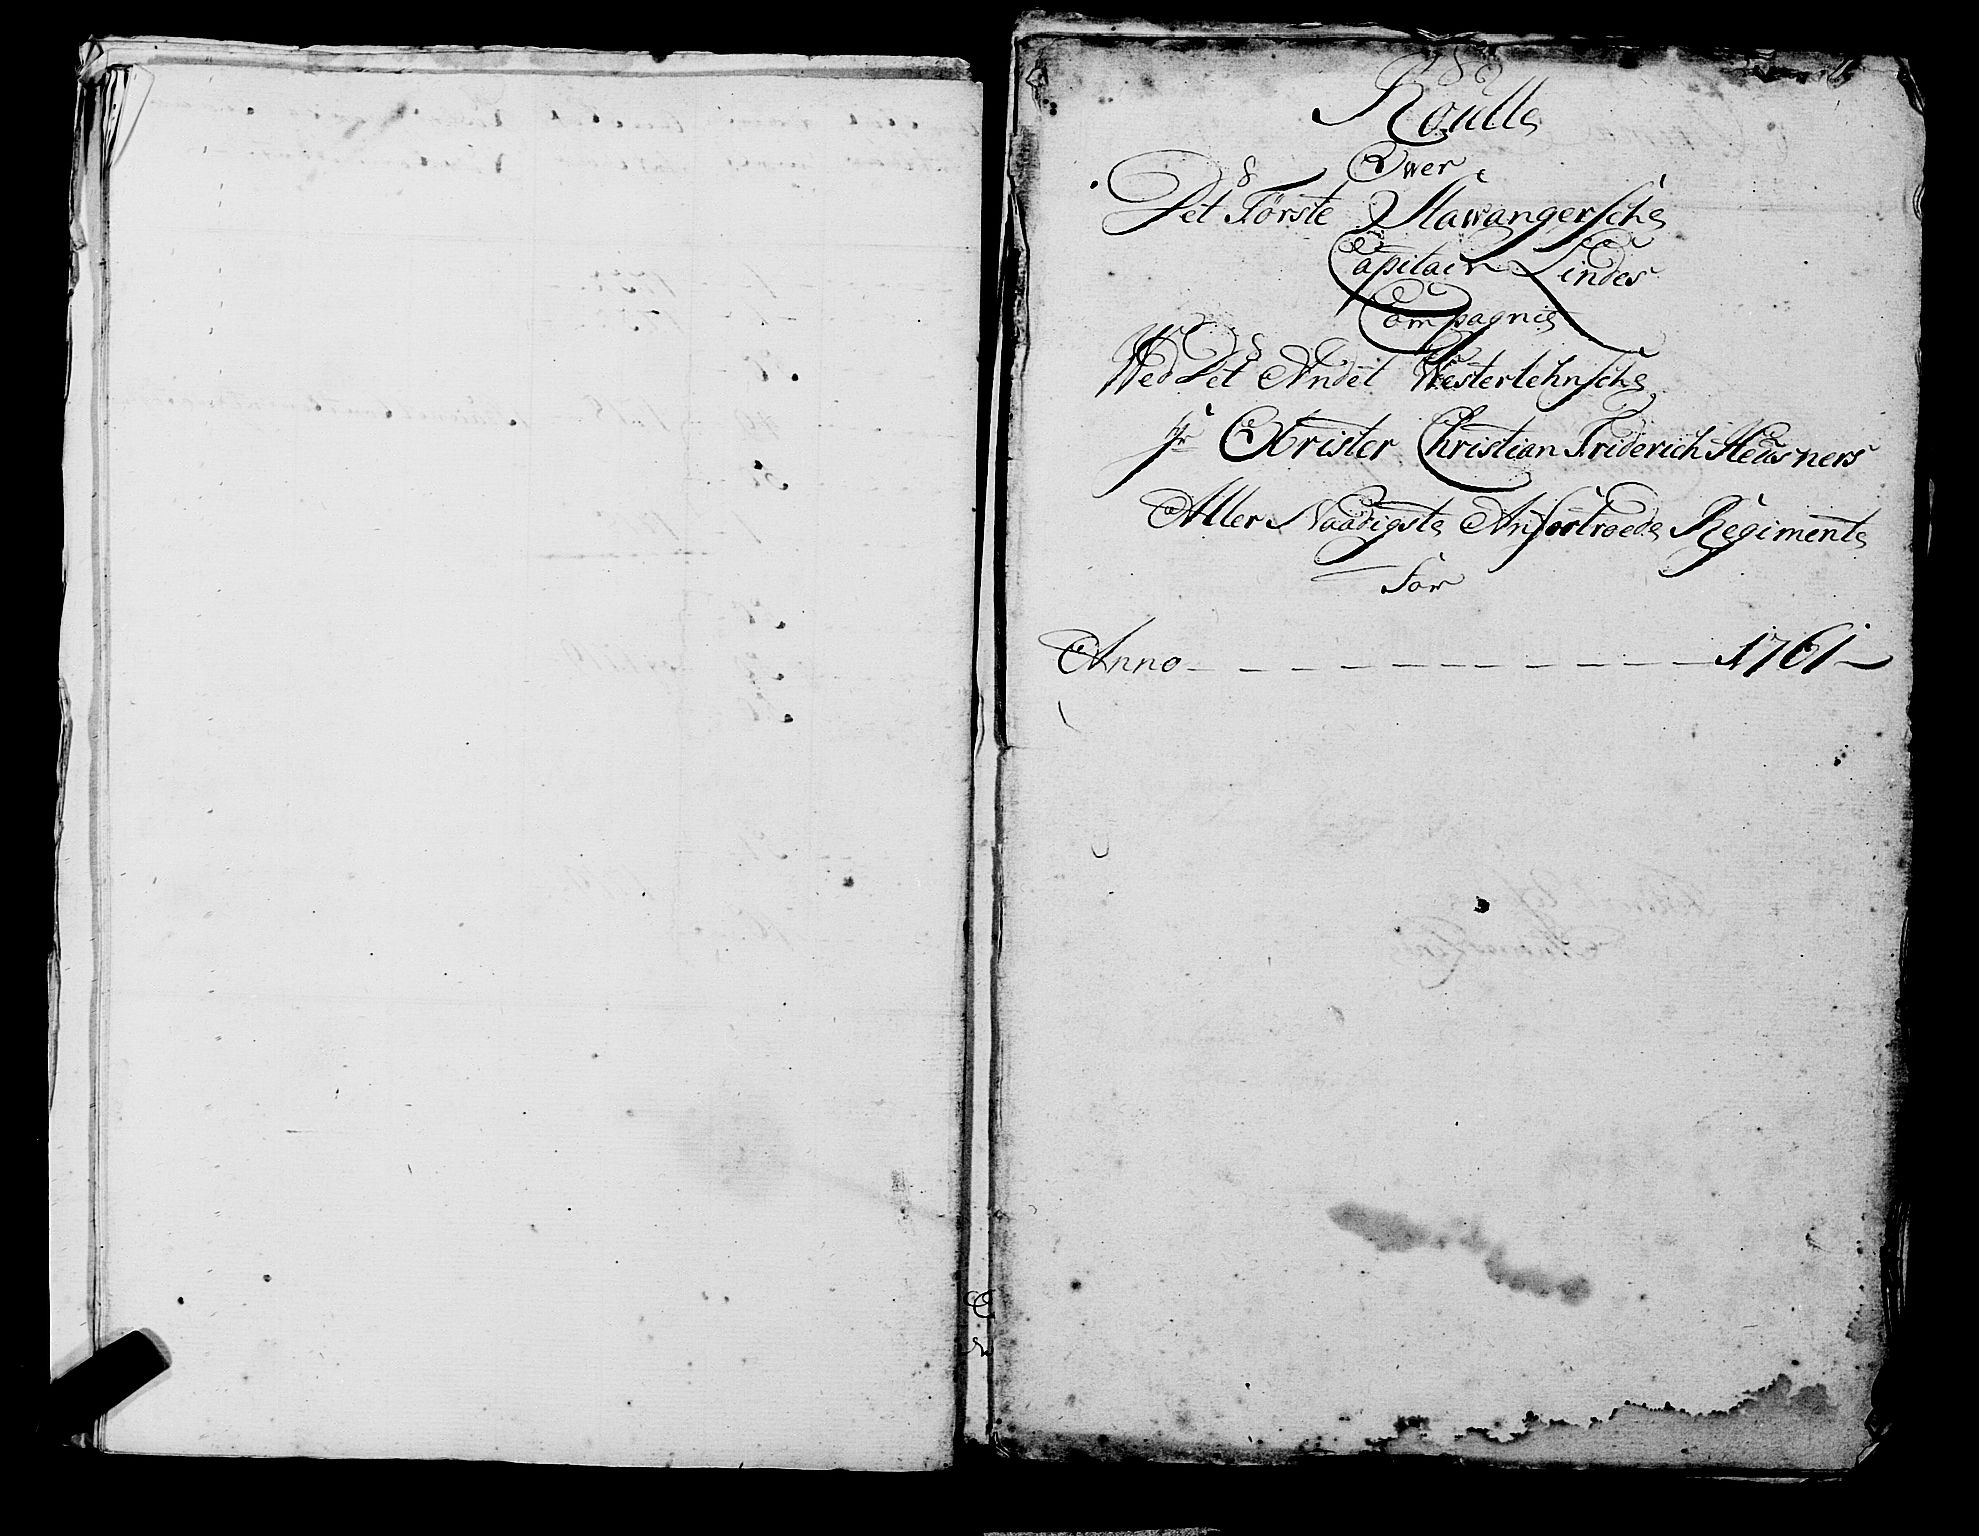 Roulle
Ower
Det Første Stawangersche
Capitain Lindes
Compagnie
Wed Det Andet Westerlehnsche
Hr Obrister Christian Friderich Heusners
Aller Naadigste Anfortroede Regimente
for
Anno - - - - - - - - - - - 1761